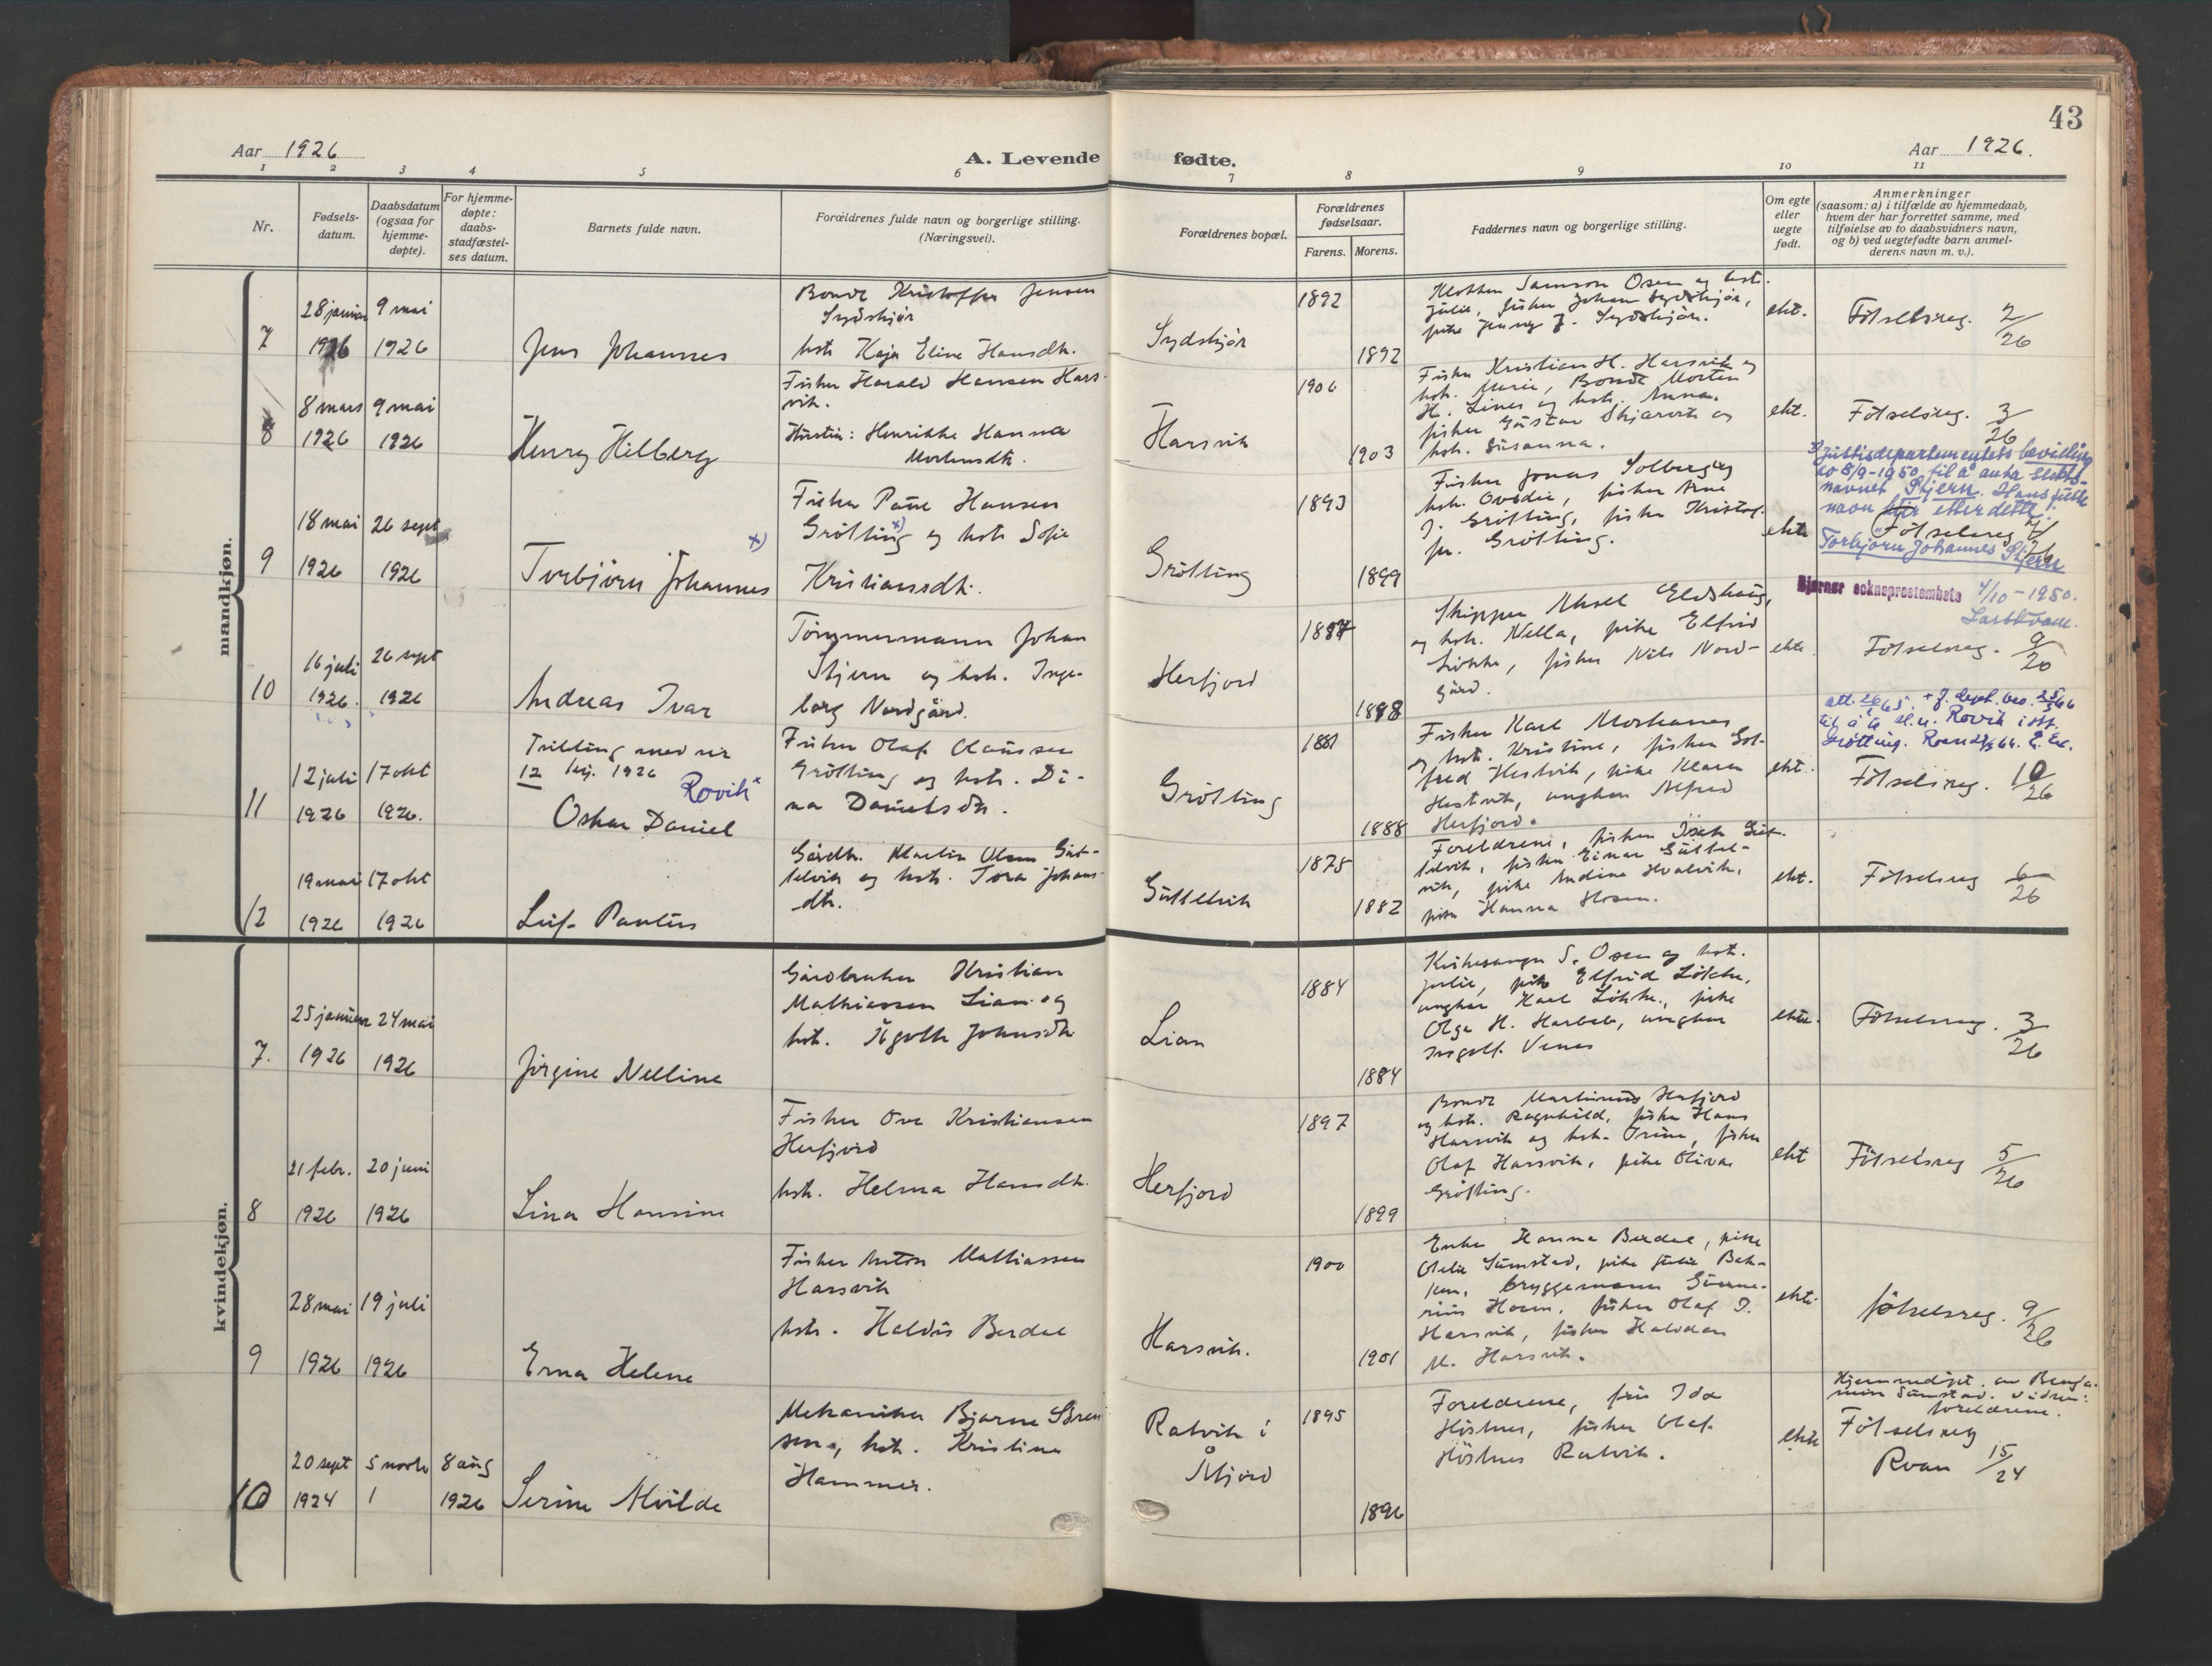 43
Aar 1926
A. Levende fødte.
Aar 1926.
1 2 3 4 5 6 7 8 9 10 11
Nr.
Fødsels-
datum.
Daabsdatum
(ogsaa for
hjemme-
døpte).
For hjemme-
døpte:
daabs-
stadfæstel-
ses datum.
Barnets fulde navn.
Forældrenes fulde navn og borgerlige stilling.
(Næringsvei).
Forældrenes bopæl.
Forældrenes
fødselsaar.
Farens. Morens.
Faddernes navn og borgerlige stilling.
Om egte
eller
uegte
født.
Anmerkninger
(saasom: a) i tilfælde av hjemmedaab,
hvem der har forrettet samme, med
tilføielse av to daabsvidners navn,
og b) ved uegtefødte barn anmel-
derens navn m. v.).
mandkjøn.
7
28 januar
1926
9 mai
1926
Jens Johannes
Bonde Kristoffer Jensen
Sydskjör
hstr Kaja Eline Hansdtr.
Sydskjör
1892
1892
Klokker Samson Osen og hstr.
Julie, fisker Johan Sydskjör,
pike Jenny J. Sydskjör.
ekt.
Fötselsreg. 2/26
8
8 mars
1926
9 mai
1926
Henry Hilberg
Fisker Harald Hansen Hars-
vik.
Hustru: Henrikke Hanna
Mortensdtr.
Harsvik
1906
1903
Fisker Kristian H. Harsvik og
hstr. Marie, Bonde Morten
H. Lines og hstr. Anna,
fisker Gustav Skjærvik og
hstr. Susanna.
ekt.
Fötselsreg. 3/26
9
18 mai
1926
26 sept
1926
x)
Torbjörn Johannes
Fisker Paul Hansen
Grötting x) og hstr Sofie
Kristiansdtr.
Grötting
1893
1899
Fisker Jonas Solberg og
hstr. Ovedie, fisker Arne
J. Grötting, fisker Kristof-
fer Grötting.
ekte
x) Justisdepartementets bevilling
av 8/9-1950 til å anta slekts-
navnet Stjern. Hans fulle
navn blir etter dette:
Fötselsreg
Torbjørn Johannes Stjern
Bjørnør sokneprestembete 4/10-1950.
10
16 juli
1926.
26 sept
1926
Andreas Ivar
Tömmermann Johan
Stjern og hstr. Inge-
borg Nordgård.
Herfjord
1897
1898
Skipper Aksel Eldshaug,
og hstr. Nella, pike Elfrid
Lökke, fisker Nils Nord-
gård.
ekte.
Fötselsreg. 9/20
11
12 juli
1926
17 okt
1926.
Tvilling med nr
12 kvj. 1926
Rovik x
Oskar Daniel
Fisker Olaf Claussen
Grötting og hstr. Di-
na Danielsdtr.
Grötting
1881
1888
Fisker Karl Morkanes
og hstr. Kristine, fisker Got-
fred Hestvik, pike Klara
Hestvik, ungkar Alfred
Herfjord.
ekt.
til å ta sl.n. Rovik istf.
Grötting.
Fötselsreg. 10/26
12
19 mai
1926
17 okt
1926
Leif Paulus
Gårdbr. Martin Olsen Gut-
telvik og hstr. Tora Johans-
dtr.
Guttelvik
1875
1882
Foreldrene, fisker Isak Gut-
telvik, fisker Einar Guttel-
vik, pike Andine Hvalvik,
pike Hanna Hosen.
ekt.
Fötselsreg 6/26
kvindekjøn.
7.
25 januar
1926
24 mai
1926
Jörgine Nelline
Gårdbruker Kristian
Mathiassen Lian og
hstr. Ågoth Johnsdtr
Lian
1884
1884
Kirkesanger S. Osen og hstr.
Julie, pike Elfrid Lökke,
ungkar Karl Lökke, pike
Olga H. Harbak, ungkar
Ingolf Venes
ekte.
Fötselsreg. 3/26
8
21 febr.
1926
20 juni
1926
Lina Hansine
Fisker Ove Kristiansen
Herfjord
hstr. Helma Hansdtr.
Herfjord
1897
1899
Bonde Martinus Herfjord
og hstr. Ragnhild, fisker Hans
Harsvik og hstr. Trine, fisker
Olaf Harsvik, pike Oliva
Grötting.
ekt
Fötselsreg 5/26
9
28 mai
1926
19 juli
1926
Erna Helene
Fisker Anton Mathiassen
Harsvik
hstr. Haldis Berdal
Harsvik.
1900
1901
Enke Hanna Berdal, pike
Olelie Sumstad, pike Julie Bek-
ken, bryggemann Gunne-
rius Hosen, fisker Olaf I.
Harsvik, fisker Halvdan
M. Harsvik.
ekte.
fötselsreg. 9/26
10
20 sept
1924
5 novbr
1
8 aug
1926
Serine Alvilde
Mekaniker Bjarne Sören
sen, hstr. Kristine
Hammer.
Ratvik i
Åfjord
1895
1896
Foreldrene, fru Ida
Höstnes, fisker Olaf
Höstnes Ratvik.
ekte
Hjemmedöpt av Benja-
min Sumstad. Vidner:
foreldrene.
Fötselsreg
Roan 15/24